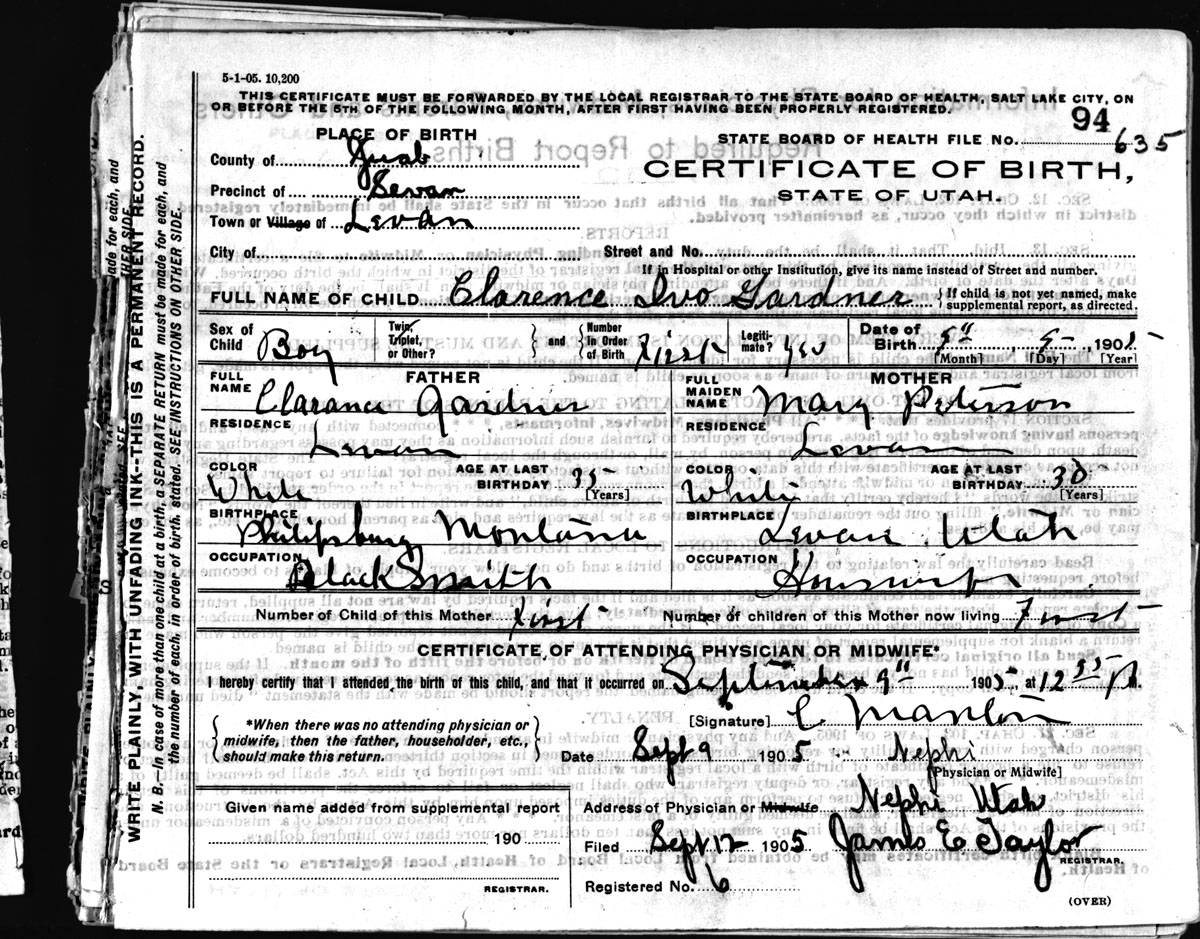 5-1-05. 10,200
THIS CERTIFICATE MUST BE FORWARDED BY THE LOCAL REGISTRAR TO THE STATE BOARD OF HEALTH, SALT LAKE CITY, ON
OR BEFORE THE 5TH OF THE FOLLOWING MONTH, AFTER FIRST HAVING BEEN PROPERLY REGISTERED.
94
PLACE OF BIRTH
STATE BOARD OF HEALTH FILE NO. 635
County of Juab
CERTIFICATE OF BIRTH,
Precinct of Levan
STATE OF UTAH.
Town or Village of Levan
City of Street and No.
If in Hospital or other Institution, give its name instead of Street and number.
FULL NAME OF CHILD Clarence Ivo Gardner { If child is not yet named, make supplemental report, as directed.
Sex of Child Boy Twin, Triplet, or Other? } and { Number in Order of Birth First Legiti-mate? yes Date of Birth 9" 9 1905
[Month] [Day] [Year]
FATHER MOTHER
FULL NAME Clarance Gardner FULL MAIDEN NAME Mary Peterson
RESIDENCE Levan RESIDENCE Levan
COLOR White AGE AT LAST BIRTHDAY 35 [Years] COLOR White AGE AT LAST BIRTHDAY 30 [Years]
BIRTHPLACE Philipsburg Montana BIRTHPLACE Levan Utah
OCCUPATION Black Smith OCCUPATION Housewife
Number of Child of this Mother First Number of children of this Mother now living First
CERTIFICATE OF ATTENDING PHYSICIAN OR MIDWIFE*
I hereby certify that I attended the birth of this child, and that it occurred on September 9" 1905, at 12 35
*When there was no attending physician or midwife, then the father, householder, etc., should make this return.
[Signature]
Date Sept 9 1905 Nephi
[Physician or Midwife]
Given name added from supplemental report
190
REGISTRAR.
Address of Physician or Midwife Nephi Utah
Filed Sept 12 1905 James E Taylor
REGISTRAR.
Registered No. 6
(OVER)
WRITE PLAINLY, WITH UNFADING INK--THIS IS A PERMANENT RECORD.
N. B.--In case of more than one child at a birth, a SEPARATE RETURN must be made for each, and
the number of each, in order of birth, stated. SEE INSTRUCTIONS ON OTHER SIDE.